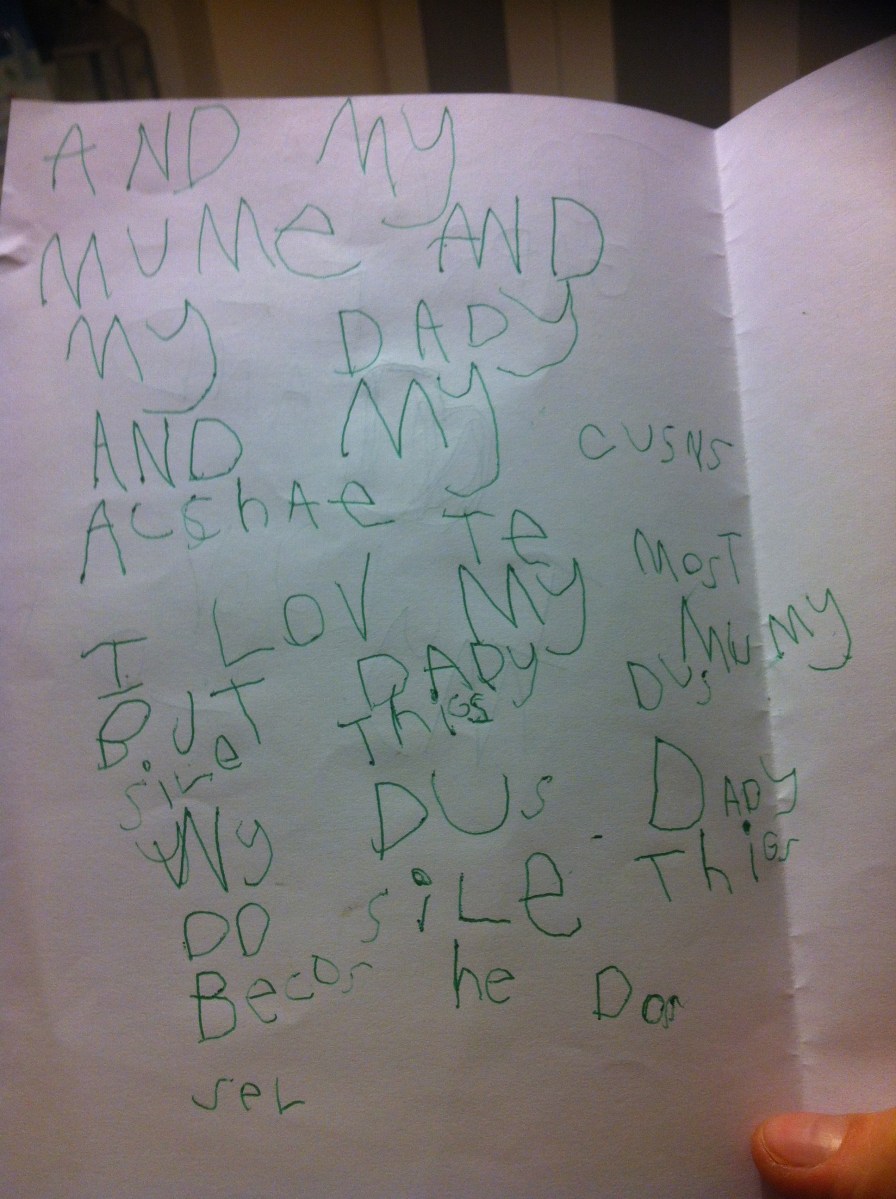 AND MY
MUMe AND
MY DADY
AND MY CUSNS
ACShAe Te
I LOV MY MOST MuMY
BUT DADY DUS
SiLe ThiGS
WY DUS DADY
DO SiLe ThiGS
Becos he Dos
seL